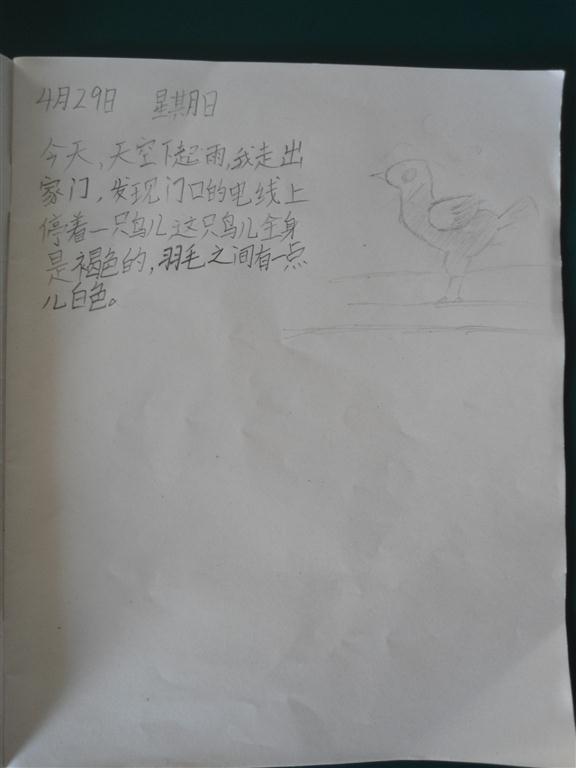 4月29日 星期日
今天,天空下起雨,我走出
家门,发现门口的电线上
停着一只鸟儿这只鸟儿全身
是褐色的,羽毛之间有一点
儿白色。